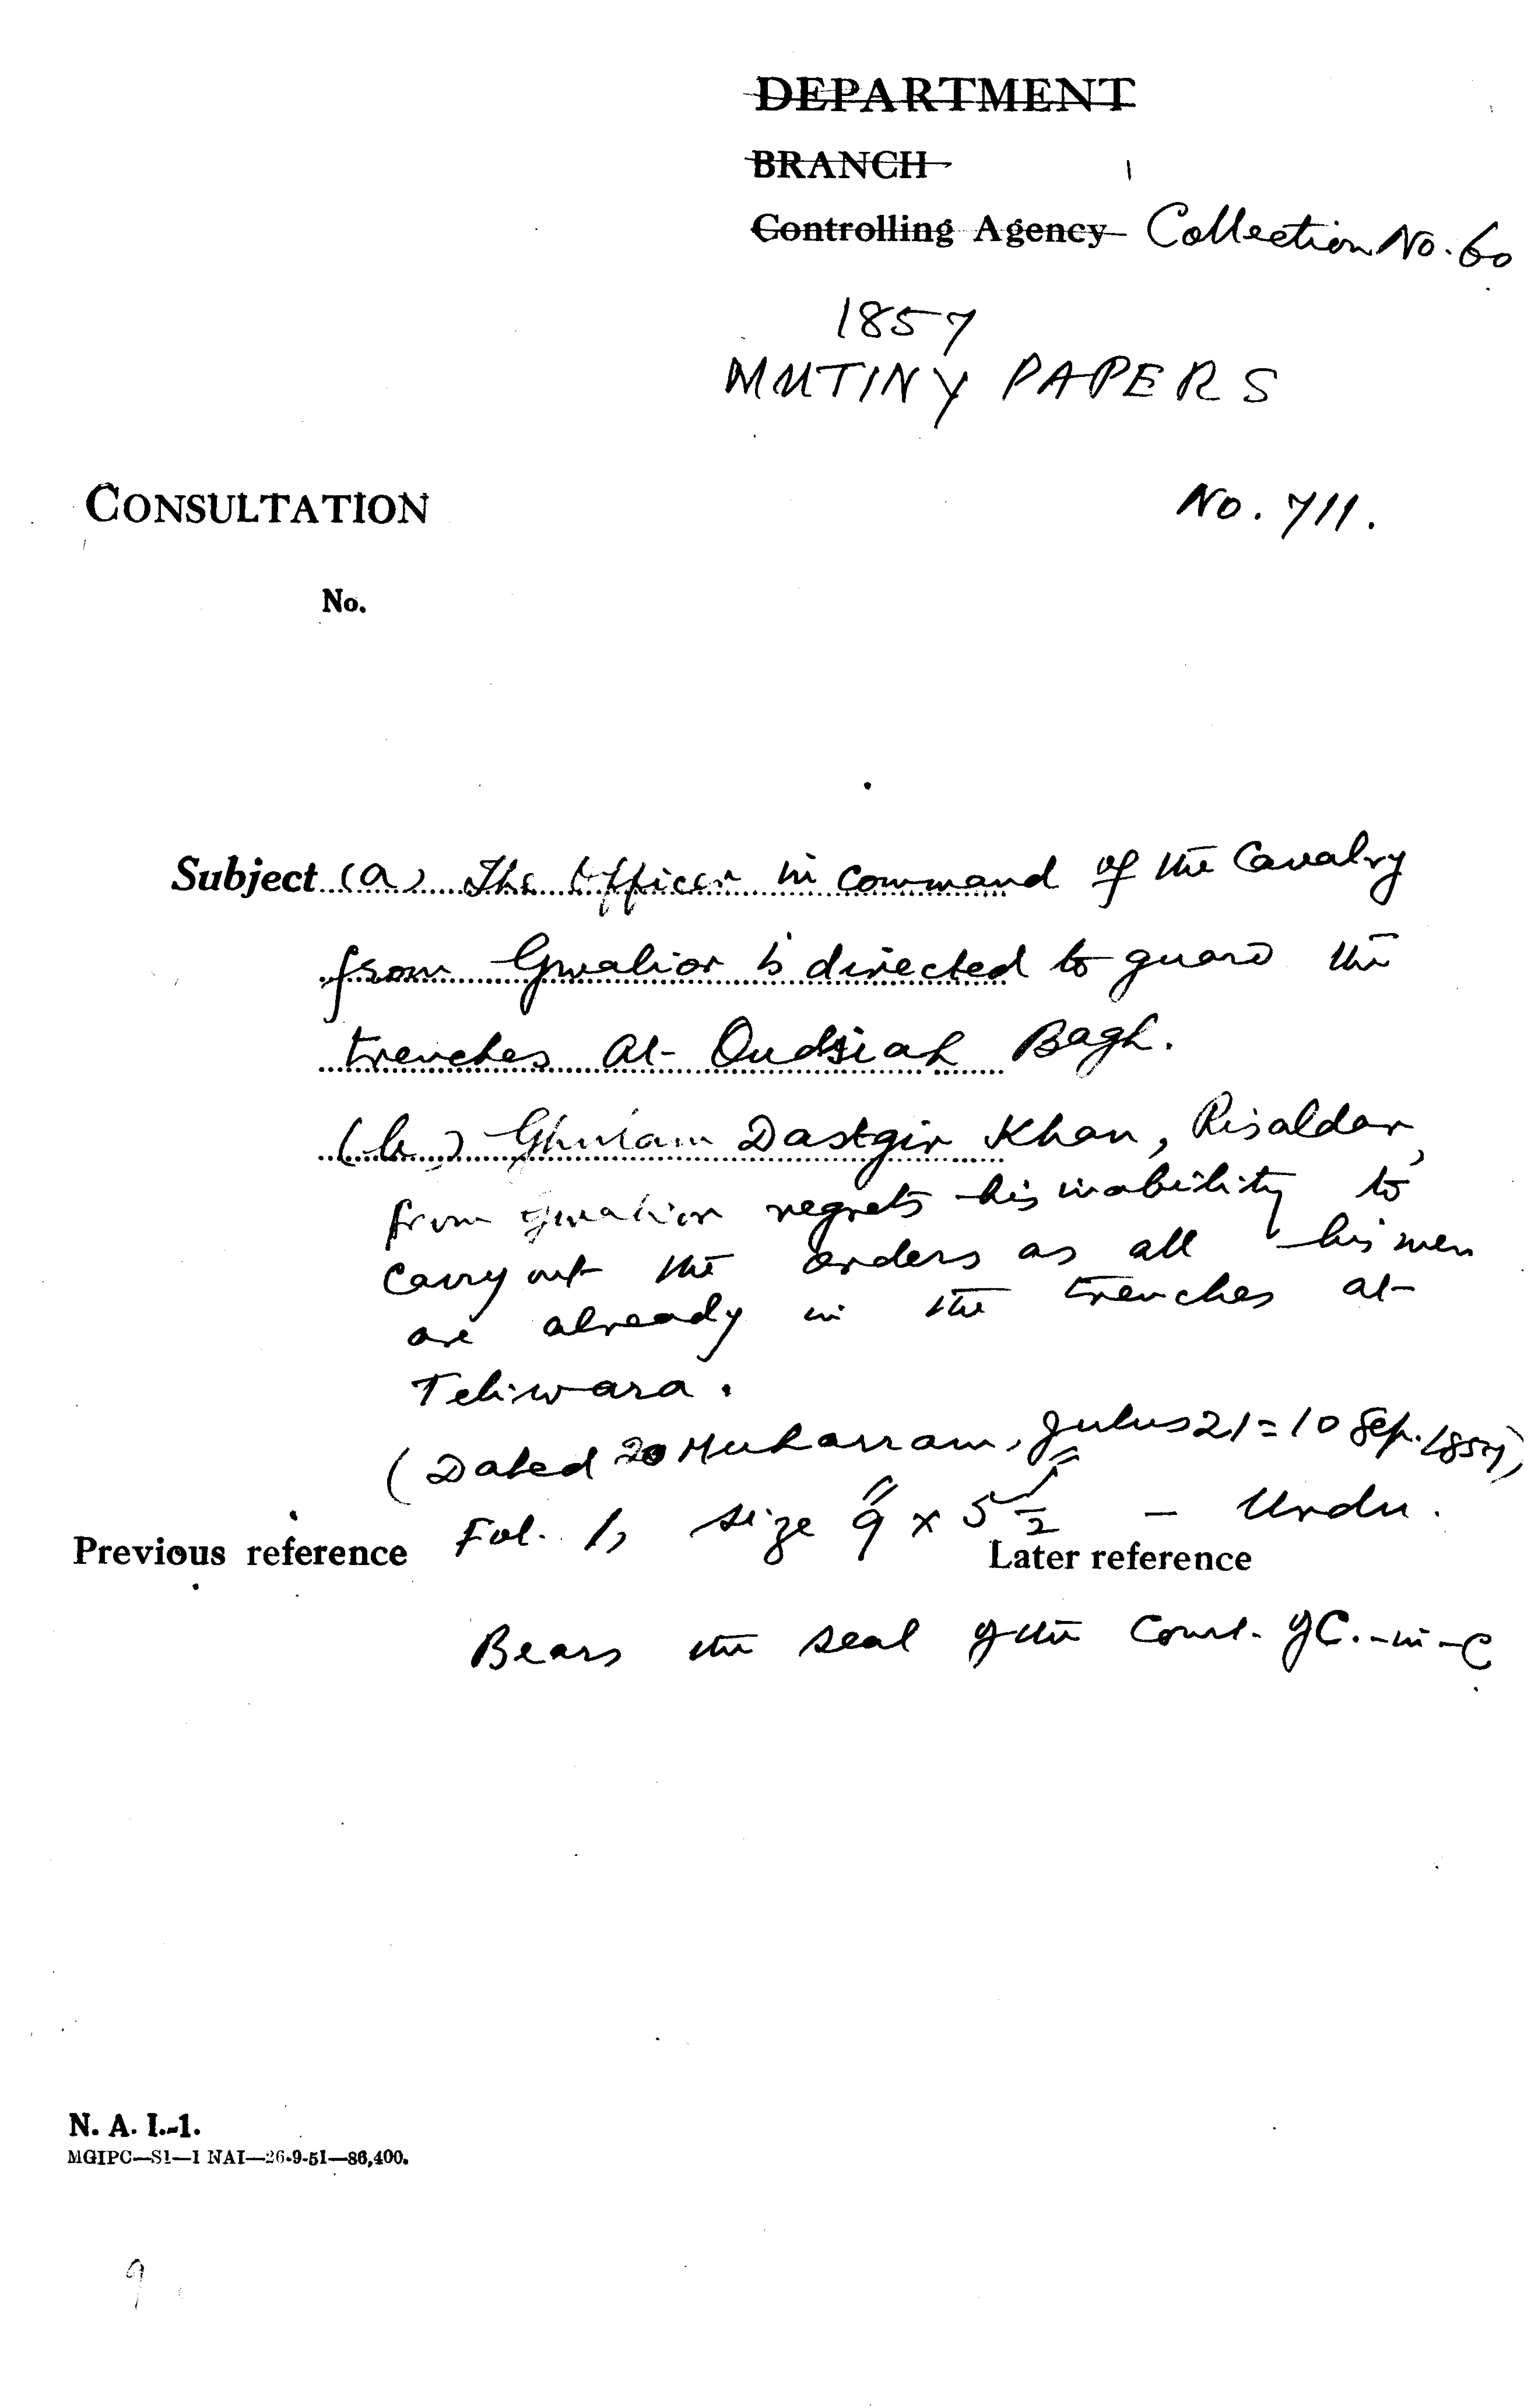 DEPARTMENT
BRANCH
Controlling Agency Collection No. 60
1857
MUTINY PAPERS
CONSULTATION No. 711.
No.
Subject (a) The Officer in command of the Cavalry
from Gwalior is directed to guard the
trenches at Qudsiah Bagh.
(b) Ghulam Dastgir Khan, Risaldar,
from Gwalior regrets his inability to
carry out the orders as all his men
are already in the trenches at
Teliwara.
(Dated 20 Muharram, Julus 21 = 10 Sep. 1857)
Fol. 1, size 9" x 5 1/2" – Urdu.
Previous reference Later reference
Bears the seal of the Court of C.-in-C
N. A. I.-1.
MGIPC—S1—1 NAI—26-9-51—86,400.
9